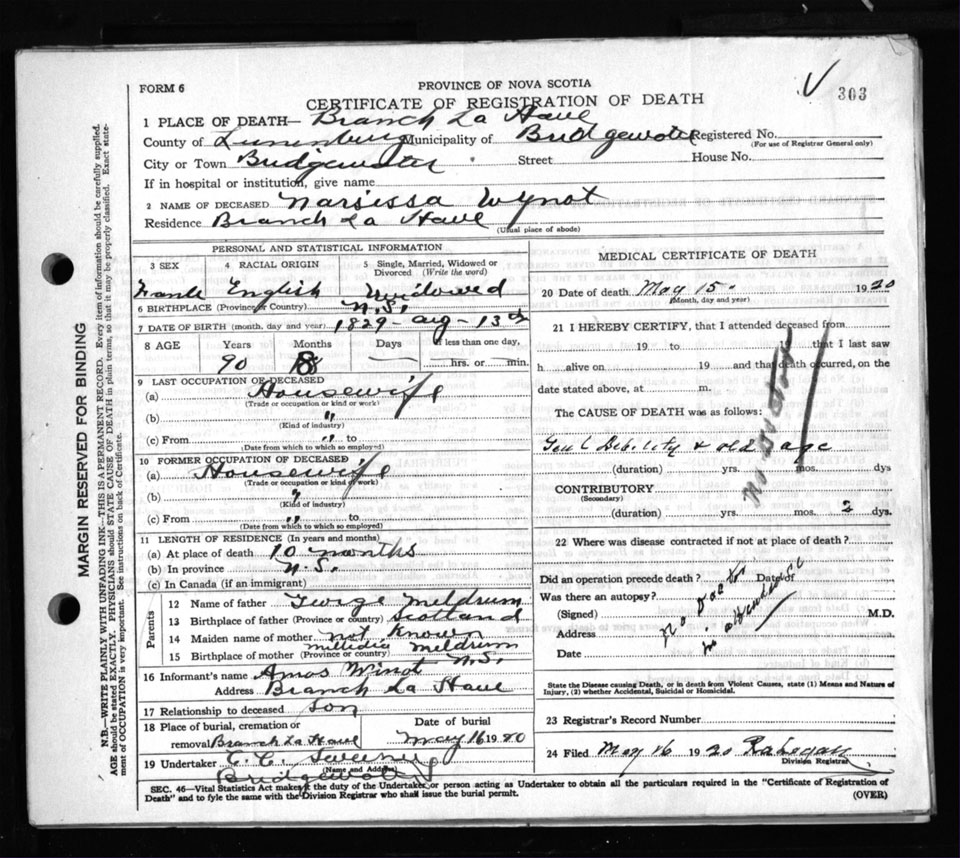 MARGIN RESERVED FOR BINDING
N.B.—WRITE PLAINLY WITH UNFADING INK—THIS IS A PERMANENT RECORD. Every item of information should be carefully supplied.
AGE should be stated EXACTLY. PHYSICIANS should STATE CAUSE OF DEATH in plain terms, so that it may be properly classified. Exact state-
ment of OCCUPATION is very important. See instructions on back of Certificate.
FORM 6
PROVINCE OF NOVA SCOTIA
V 303
CERTIFICATE OF REGISTRATION OF DEATH
1 PLACE OF DEATH— Branch La Have
County of Lunenburg Municipality of Bridgewater Registered No.
(For use of Registrar General only)
City or Town Bridgewater Street House No.
If in hospital or institution, give name
2 NAME OF DECEASED Narsissa Wynot
Residence Branch La Have
(Usual place of abode)
PERSONAL AND STATISTICAL INFORMATION
3 SEX 4 RACIAL ORIGIN 5 Single, Married, Widowed or Divorced (Write the word)
English Widowed
6 BIRTHPLACE (Province or Country) N.S.
7 DATE OF BIRTH (month, day and year) 1829 - Aug - 13th
8 AGE Years Months Days If less than one day,
90 8 — hrs. or — min.
9 LAST OCCUPATION OF DECEASED
(a) Housewife
(Trade or occupation or kind or work)
(b) "
(Kind of industry)
(c) From " to
(Date from which to which so employed)
10 FORMER OCCUPATION OF DECEASED
(a) Housewife
(Trade or occupation or kind of work)
(b) "
(Kind of industry)
(c) From " to
(Date from which to which so employed)
11 LENGTH OF RESIDENCE (In years and months)
(a) At place of death 10 months
(b) In province N.S.
(c) In Canada (if an immigrant)
Parents
12 Name of father George Meldrum
13 Birthplace of father (Province or country) Scotland
14 Maiden name of mother not known
Meldrum
15 Birthplace of mother (Province or country) N.S.
16 Informant's name Amos Winot
Address Branch La Have
17 Relationship to deceased Son
18 Place of burial, cremation or Date of burial
removal Branch La Have May 16 1920
19 Undertaker C. C.
(Name and Address)
Bridgewater
MEDICAL CERTIFICATE OF DEATH
20 Date of death May 15. 1920
(Month, day and year)
21 I HEREBY CERTIFY, that I attended deceased from
19 to that I last saw
h alive on 19 and that death occurred, on the
date stated above, at m.
The CAUSE OF DEATH was as follows:
Genl Debility & old age
(duration) yrs. mos. dys
CONTRIBUTORY
(Secondary)
(duration) yrs. mos. 2 dys.
No Doctor
22 Where was disease contracted if not at place of death?
Did an operation precede death? Date of
Was there an autopsy?
(Signed) M.D.
Address
Date
No Doctor
in attendance
State the Disease causing Death, or in death from Violent Causes, state (1) Means and Nature of
Injury, (2) whether Accidental, Suicidal or Homicidal.
23 Registrar's Record Number
24 Filed May 16 1920
Division Registrar
SEC. 46—Vital Statistics Act makes it the duty of the Undertaker or person acting as Undertaker to obtain all the particulars required in the "Certificate of Registration of
Death" and to fyle the same with the Division Registrar who shall issue the burial permit.
(OVER)